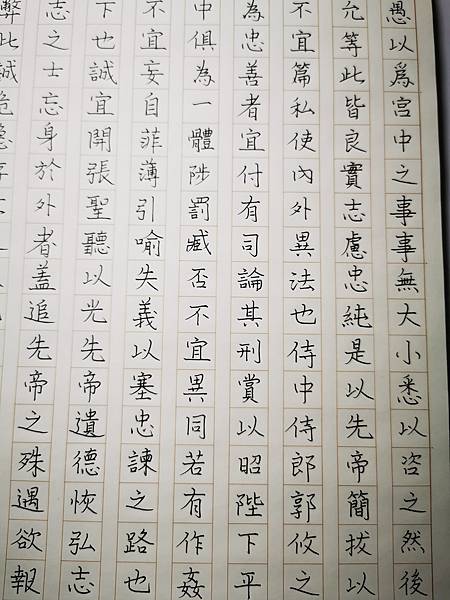 愚以爲宮中之事事無大小悉以咨之然後
允等此皆良實志慮忠純是以先帝簡拔以
不宜篇私使內外異法也侍中侍郎郭攸之
為忠善者宜付有司論其刑賞以昭陛下平
中俱為一體陟罰臧否不宜異同若有作姦
不宜妄自菲薄引喻失義以塞忠諫之路也
下也誠宜開張聖聽以光先帝遺德恢弘志
志之士忘身於外者蓋追先帝之殊遇欲報
弊此誠危